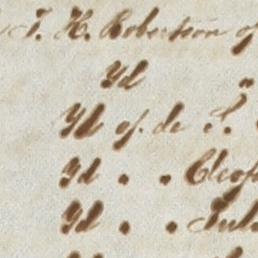 T. H. Robertson of
Yd "
Yd of do S.
Yd . . Cleop
Yd . . Jul